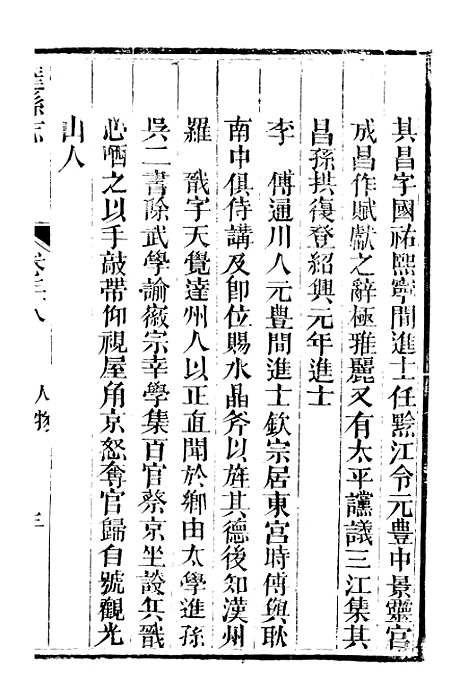 其昌字國祐熙寧間進士任黔江令元豐中景靈宮
成昌作賦獻之辭極雅麗又有太平讜議三江集其
昌孫拱復登紹興元年進士
李　傅通川人元豐間進士欽宗居東宮時傅與耿
南中俱侍講及卽位賜水晶斧以旌其德後知漢州
羅　戩字天覺達州人以正直聞於鄉由太學進孫
吳二書除武學諭徽宗幸學集百官蔡京坐談兵戩
心哂之以手敲帶仰視屋角京怒奪官歸自號觀光
山人
縣志
卷三八
人物
三